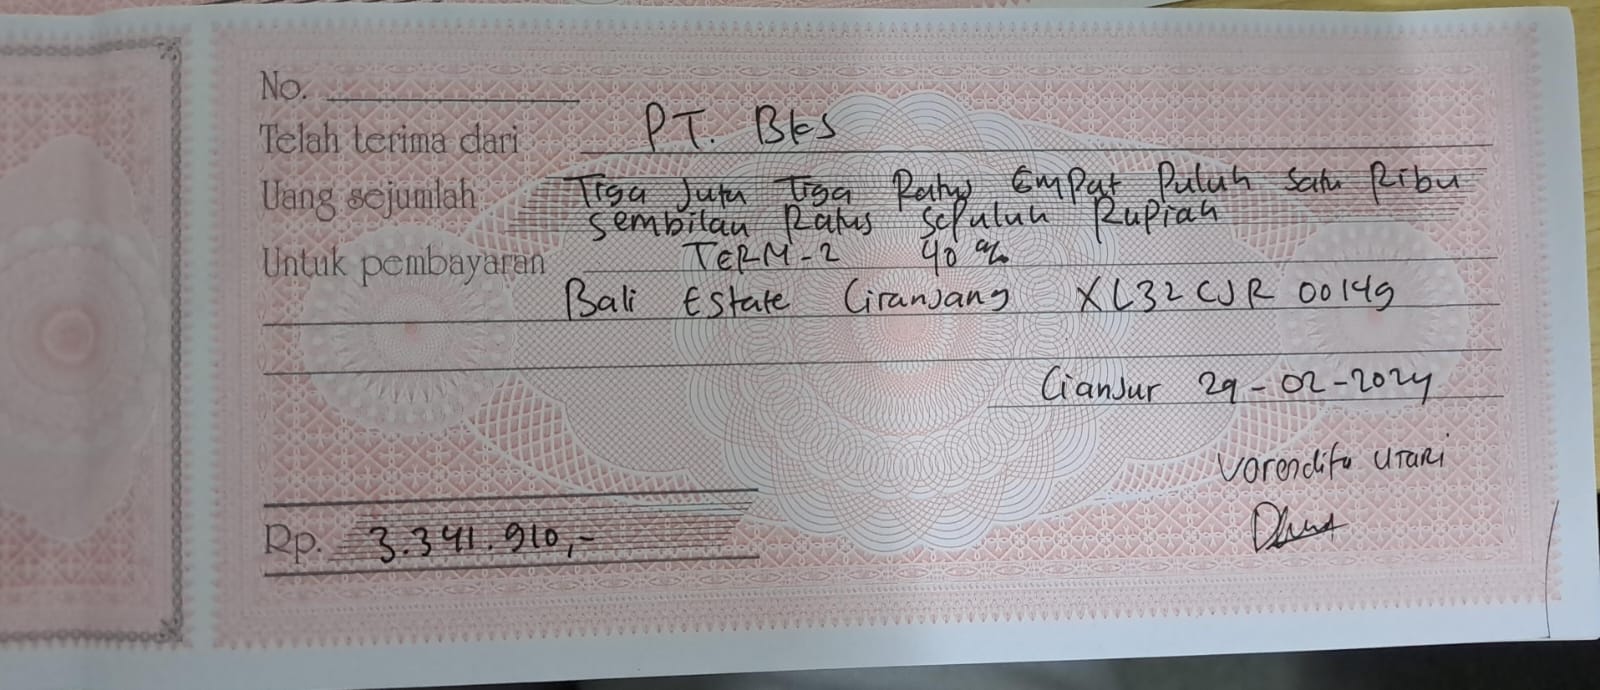 No.
Telah terima dari PT. BKS
Uang sejumlah Tiga Juta Tiga Ratus Empat Puluh Satu Ribu
Sembilan Ratus Sepuluh Rupiah
Untuk pembayaran TERM-2 40 %
Bali Estate Ciranjang XL32CJR 00149
Cianjur 29-02-2024
Utari
Rp. 3.341.910,-